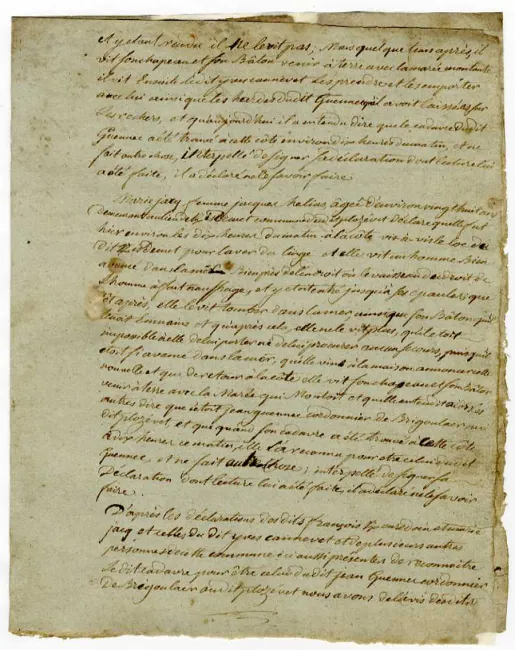 et y etant rendu il ne le vit pas; Mais quelque tems après, il
vit son chapeau et son Bâton venir à terre avec la marée montante
Ensuite ledit yves cannevet les prendre et les emporter
avec lui ainsi que les hardes dudit Guennec qu'il avoit laissées sur
les rochers, et qu'aujourdhui il a entendu dire que le cadavre dudit
Guennec a été trouvé à cette côte environ dix heures du matin, et ne
sait autre chose, interpellé de signer sa déclaration dont lecture lui
a été faite, il a déclaré ne le savoir faire
Marie jacq femme jacques helias agée d'environ vingt huit ans
demeurant au lieu de commune dudit plozévet déclare quelle fut
hier environ les dix heures du matin à la côte vis à vis le lieu
dit pour laver du linge et elle vit un homme Bien
avancé dans la mer Bien près de l'endroit où le vaisseau des droit de
L'homme a fait naufrage, et y étoit entré jusqu'à ses epaules; que
d'après, elle le vit tomber dans la mer ainsi que son Bâton qui
étoit En mains et qu'après cela, elle ne le vit plus, qu'il étoit
impossible à elle de lui porter ni de lui procurer aucun secours, puisqu'il
étoit si avancé dans la mer, quelle vint à la maison annoncer cette
nouvelle et que de retour à la côte elle vit son chapeau et son Bâton
venir à terre avec la Marée qui Montoit et quelle entendit
autres dire que c'étoit jean guennec cordonnier de Brigoulaer au
dit plozévet et que quand son cadavre a été trouvé à cette côte
à dix heures ce matin, elle l'a reconnu pour être celui dudit
guennec, et ne sait autre chose; interpellé de signer sa
Déclaration dont lecture lui a été faite, il a déclaré ne le savoir
faire.
D'après les déclarations desdits françois et marie
jacq et celles du dit yves cannevet et de plusieurs autres
personnes de cette commune ici aussi présentes de reconnoître
le dit cadavre pour être celui dudit jean Guennec cordonnier
de Brigoulaer audit plozevet nous avons de l'avis desdits